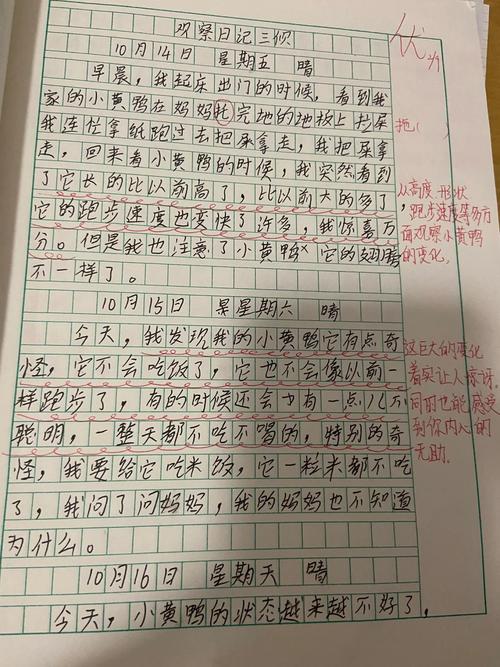 观察日记三则
优
10月14日 星期五 晴
早晨，我起床出门的时候，看到我
家的小黄鸭在妈妈托完地的地板上拉屎
拖(
我连忙拿纸跑过去把屎拿走，我把屎拿
走，回来看小黄鸭的时候，我突然看到
了它长的比以前高了，比以前大的多了，
它的跑步速度也变快了许多，我惊喜万
分。但是我也注意了小黄鸭，它的翅膀
不一样了。
从高度、形状
，跑步速度等多方
面观察小黄鸭
的变化，
10月15日 星期六 晴
今天，我发现我的小黄鸭它有点奇
怪，它不会吃饭了，它也不会像以前一
样跑步了，有的时候还会有一点儿不
聪明，一整天都不吃不喝的，特别的奇
怪，我要给它吃米饭，它一粒米都不吃
了，我问了问妈妈，我的妈妈也不知道
为什么。
这巨大的变化
着实让人惊讶
同时也能感受
到你内心的
无助。
10月16日 星期天 晴
今天，小黄鸭的状态越来越不好了，